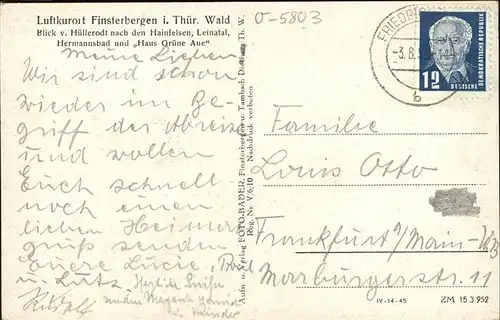 Luftkurort Finsterbergen i. Thür. Wald
Blick v. Hüllerodt nach den Hainfelsen, Leinatal,
Hermannsbad und „Haus Grüne Aue"
O-5803
FRIEDR
-3.8.
b
12
DEUTSCHE
DEMOKRATISCHE REPUBLIK
Meine Lieben
Wir sind schon
wieder im Be-
griff der Abreise
und wollen
Euch schnell
noch einen
lieben Heimat
gruß senden
Eure Lucie,
u. Lutz. Herzliche Grüße
senden
Kinder
Aufn. u. Verlag FOTO-BADER, Finsterbergen u. Tambach Dietharz Th. W.
Reg. Nr. V/6/10 Nachdruck verboten
Familie
Louis Otto
Frankfurt a/Main-W13
Marburgerstr 11
IV-14-45
ZM 15 3 952